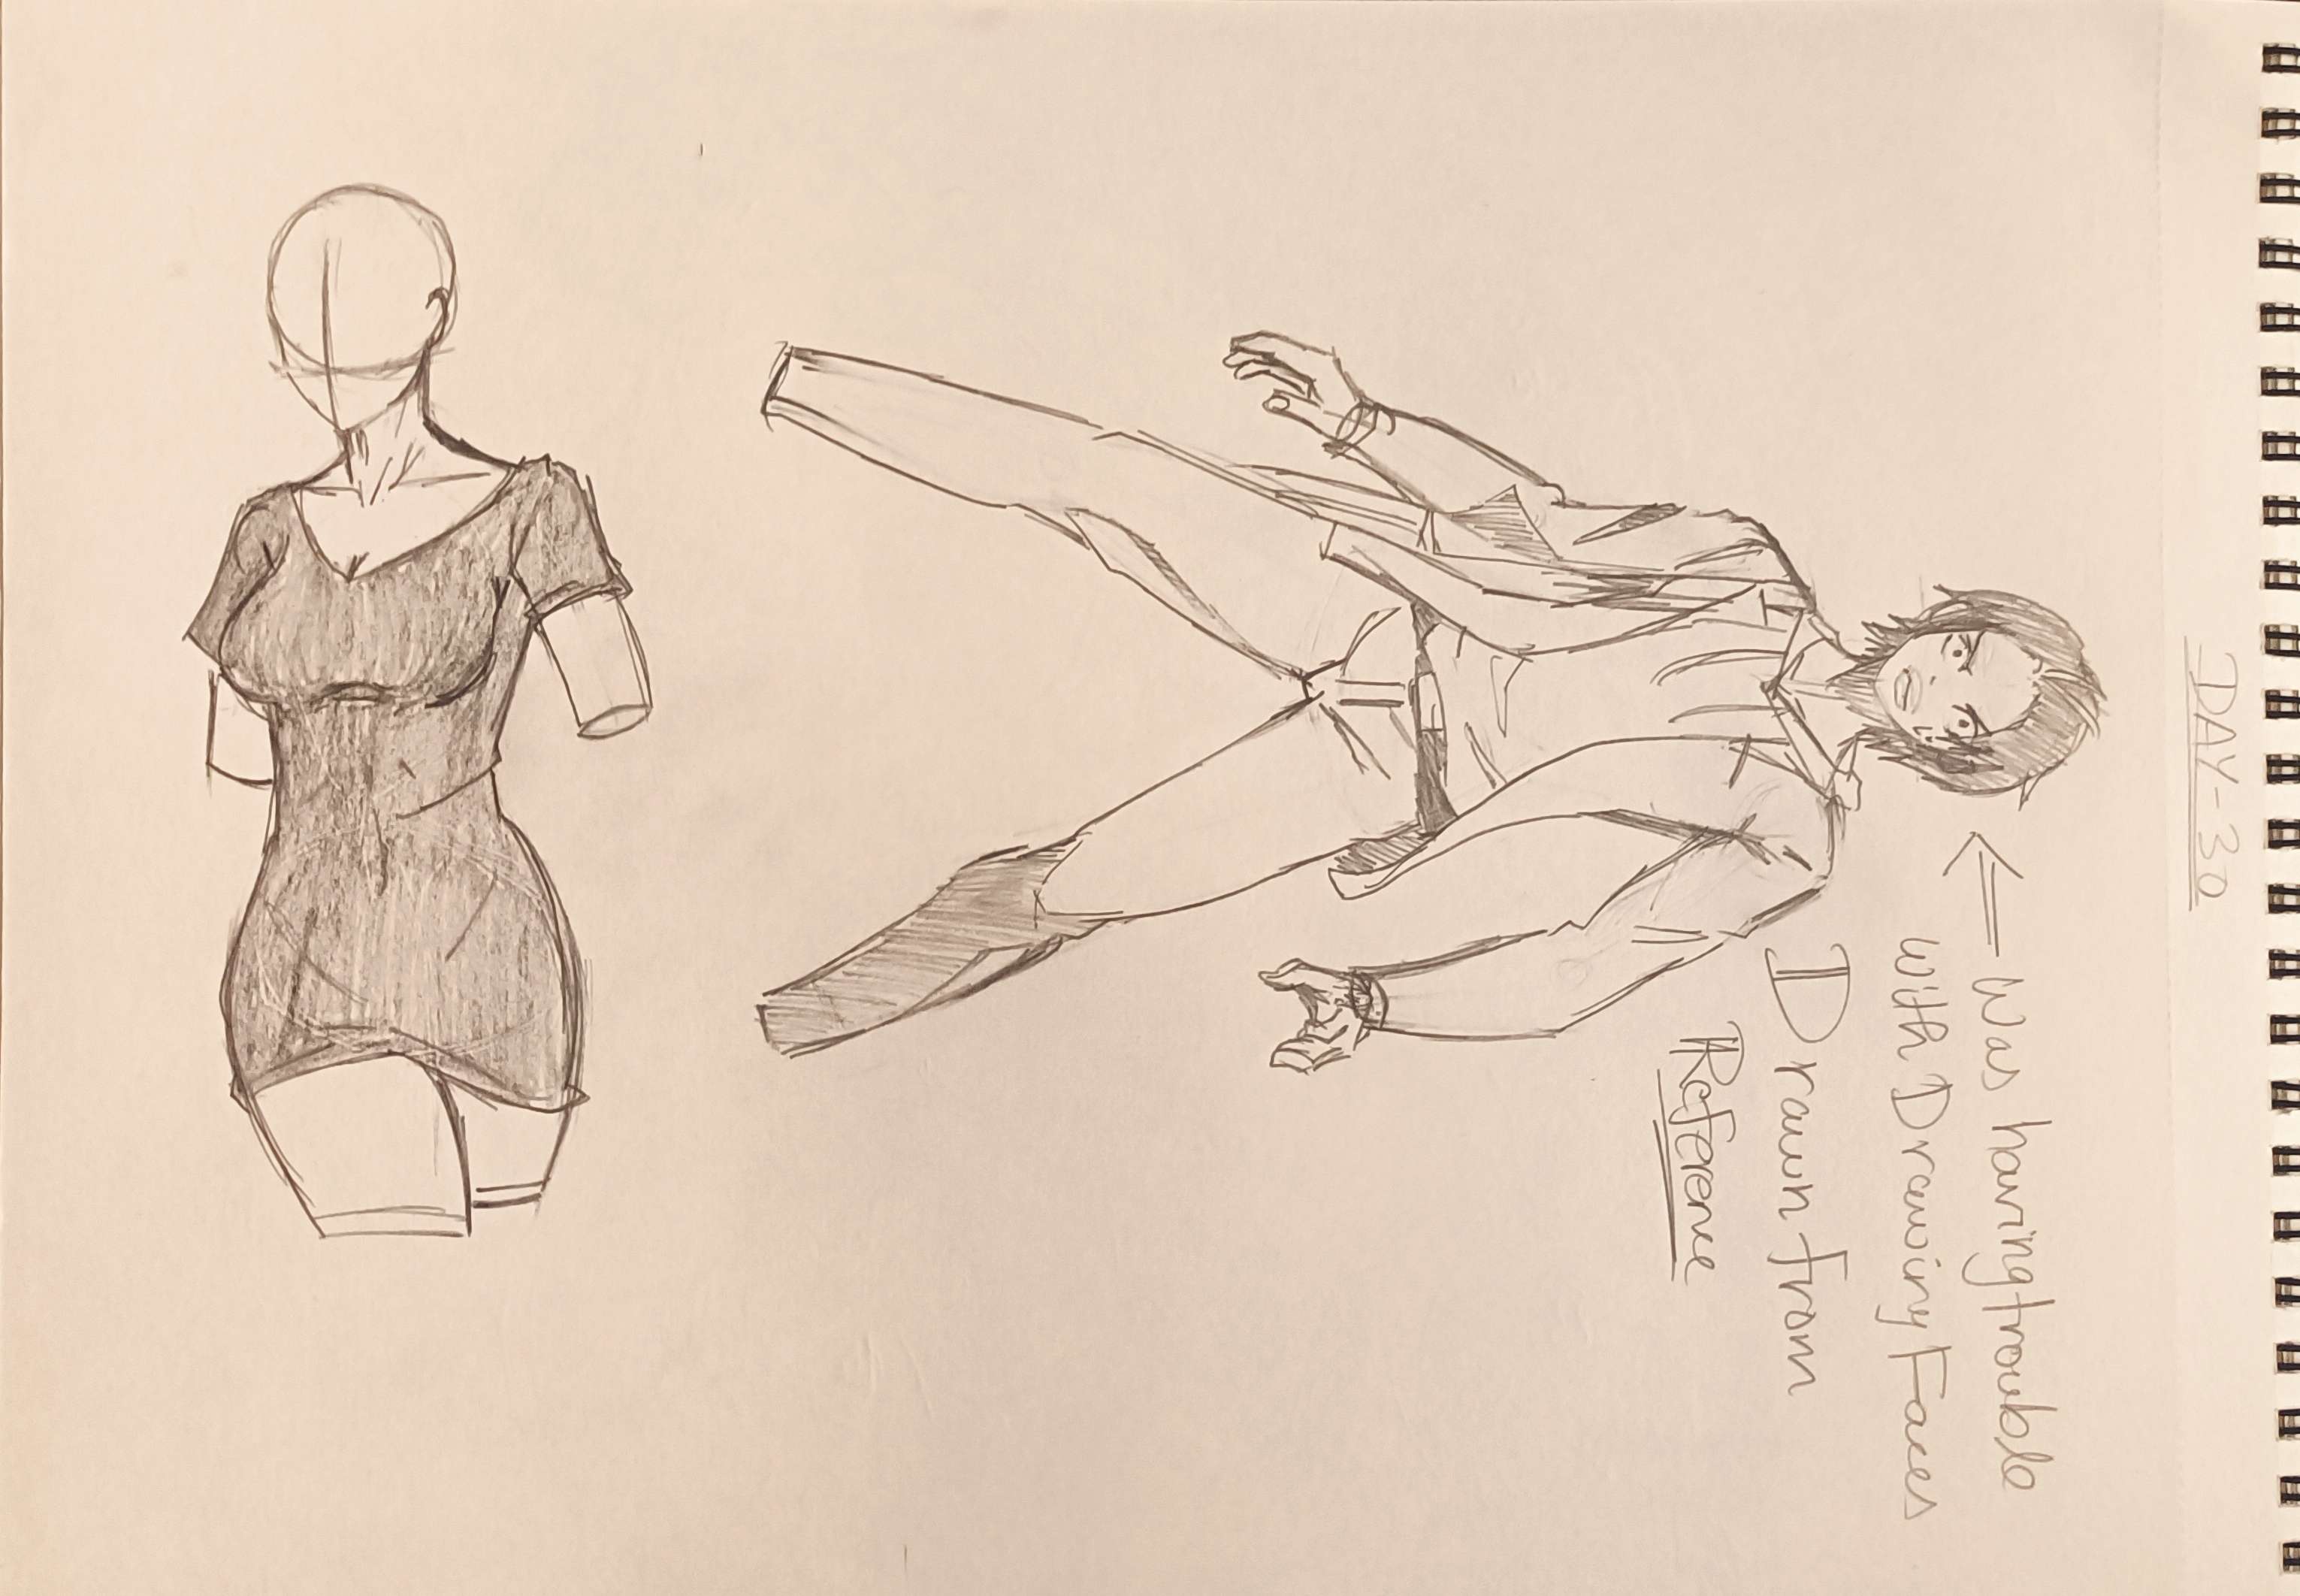 DAY-30
← Was having trouble
with Drawing Faces
Drawn from
Referene